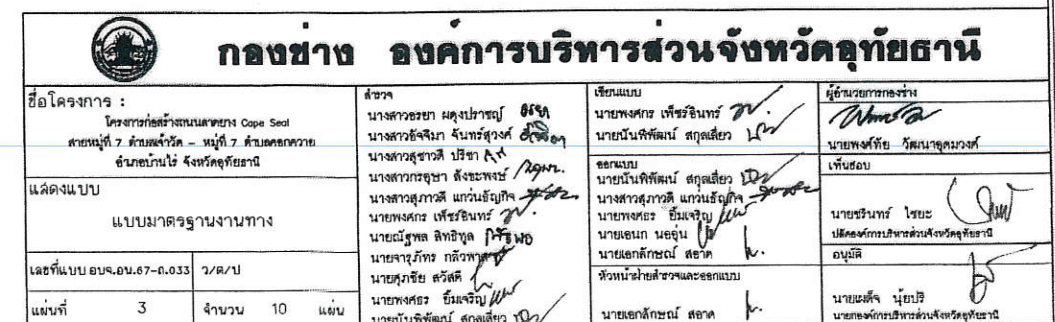 กองช่าง องค์การบริหารส่วนจังหวัดอุทัยธานี
ชื่อโครงการ :
โครงการก่อสร้างถนนลาดยาง Cape Seal
สายหมู่ที่ 7 ตำบลเจ้าวัด - หมู่ที่ 7 ตำบลคอกควาย
อำเภอบ้านไร่ จังหวัดอุทัยธานี
แสดงแบบ
แบบมาตรฐานงานทาง
เลขที่แบบ อบจ.อน.67-ถ.033 ว/ด/ป
แผ่นที่ 3 จำนวน 10 แผ่น
สำรวจ
นางสาวอรยา ผดุงปราชญ์
นางสาวอัจจิมา จันทร์สุวงค์
นางสาวสุชาวดี ปริชา
นางสาวกรอุษา สังขะพงษ์
นางสาวสุภาวดี แกว่นธัญกิจ
นายพงศกร เพ็ชร์อินทร์
นายณัฐพล สิทธิทูล
นายจารุภัทร
นายศุภชัย สวัสดี
นายพงศธร ยิ้มเจริญ
นายนันพิพัฒน์ สกุลเสี่ยว
เขียนแบบ
นายพงศกร เพ็ชร์อินทร์
นายนันพิพัฒน์ สกุลเสี่ยว
ออกแบบ
นายนันพิพัฒน์ สกุลเสี่ยว
นางสาวสุภาวดี แกว่นธัญกิจ
นายพงศธร ยิ้มเจริญ
นายเอนก นออุ่น
นายเอกลักษณ์ สอาด
หัวหน้าฝ่ายสำรวจและออกแบบ
นายเอกลักษณ์ สอาด
ผู้อำนวยการกองช่าง
นายพงศ์ทัย วัฒนาอุดมวงศ์
เห็นชอบ
นายชรินทร์ ไชยะ
ปลัดองค์การบริหารส่วนจังหวัดอุทัยธานี
อนุมัติ
นายเผด็จ นุ้ยปรี
นายกองค์การบริหารส่วนจังหวัดอุทัยธานี